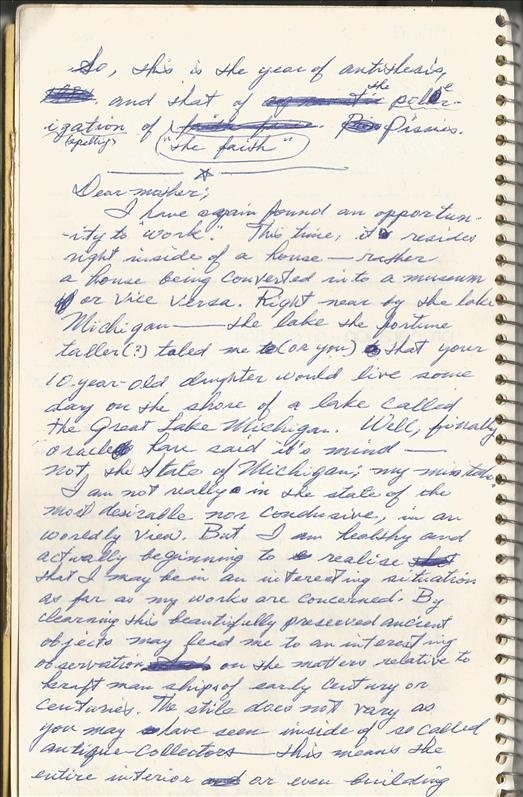 So, this is the year of antithesis,
and that of the polar-
ization of Pissies.
(spelling) "the faith"
Dear mother;
I have again found an opportun-
-ity to "work." This time, it resides
right inside of a house — rather
a house being converted into a museum
or vice versa. Right near by the lake
Michigan — the lake the fortune
taller(?) taled me (or you) that your
10-year-old daughter would live some
day on the shore of a lake called
the Great Lake Michigan. Well, finally
oracle have said it's mind —
not the State of Michigan; my mistake.
I am not really in the state of the
most desirable nor conducive, in an
worldly view. But I am healthy and
actually beginning to realise
that I may be in an interesting situation
as far as my works are concerned. By
cleaning this beautifully preserved ancient
objects may lead me to an interesting
observation on the matters relative to
kraftmanships of early century or
centuries. The stile does not vary as
you may have seen inside of so called
antique-collectors — this means the
entire interior or even building